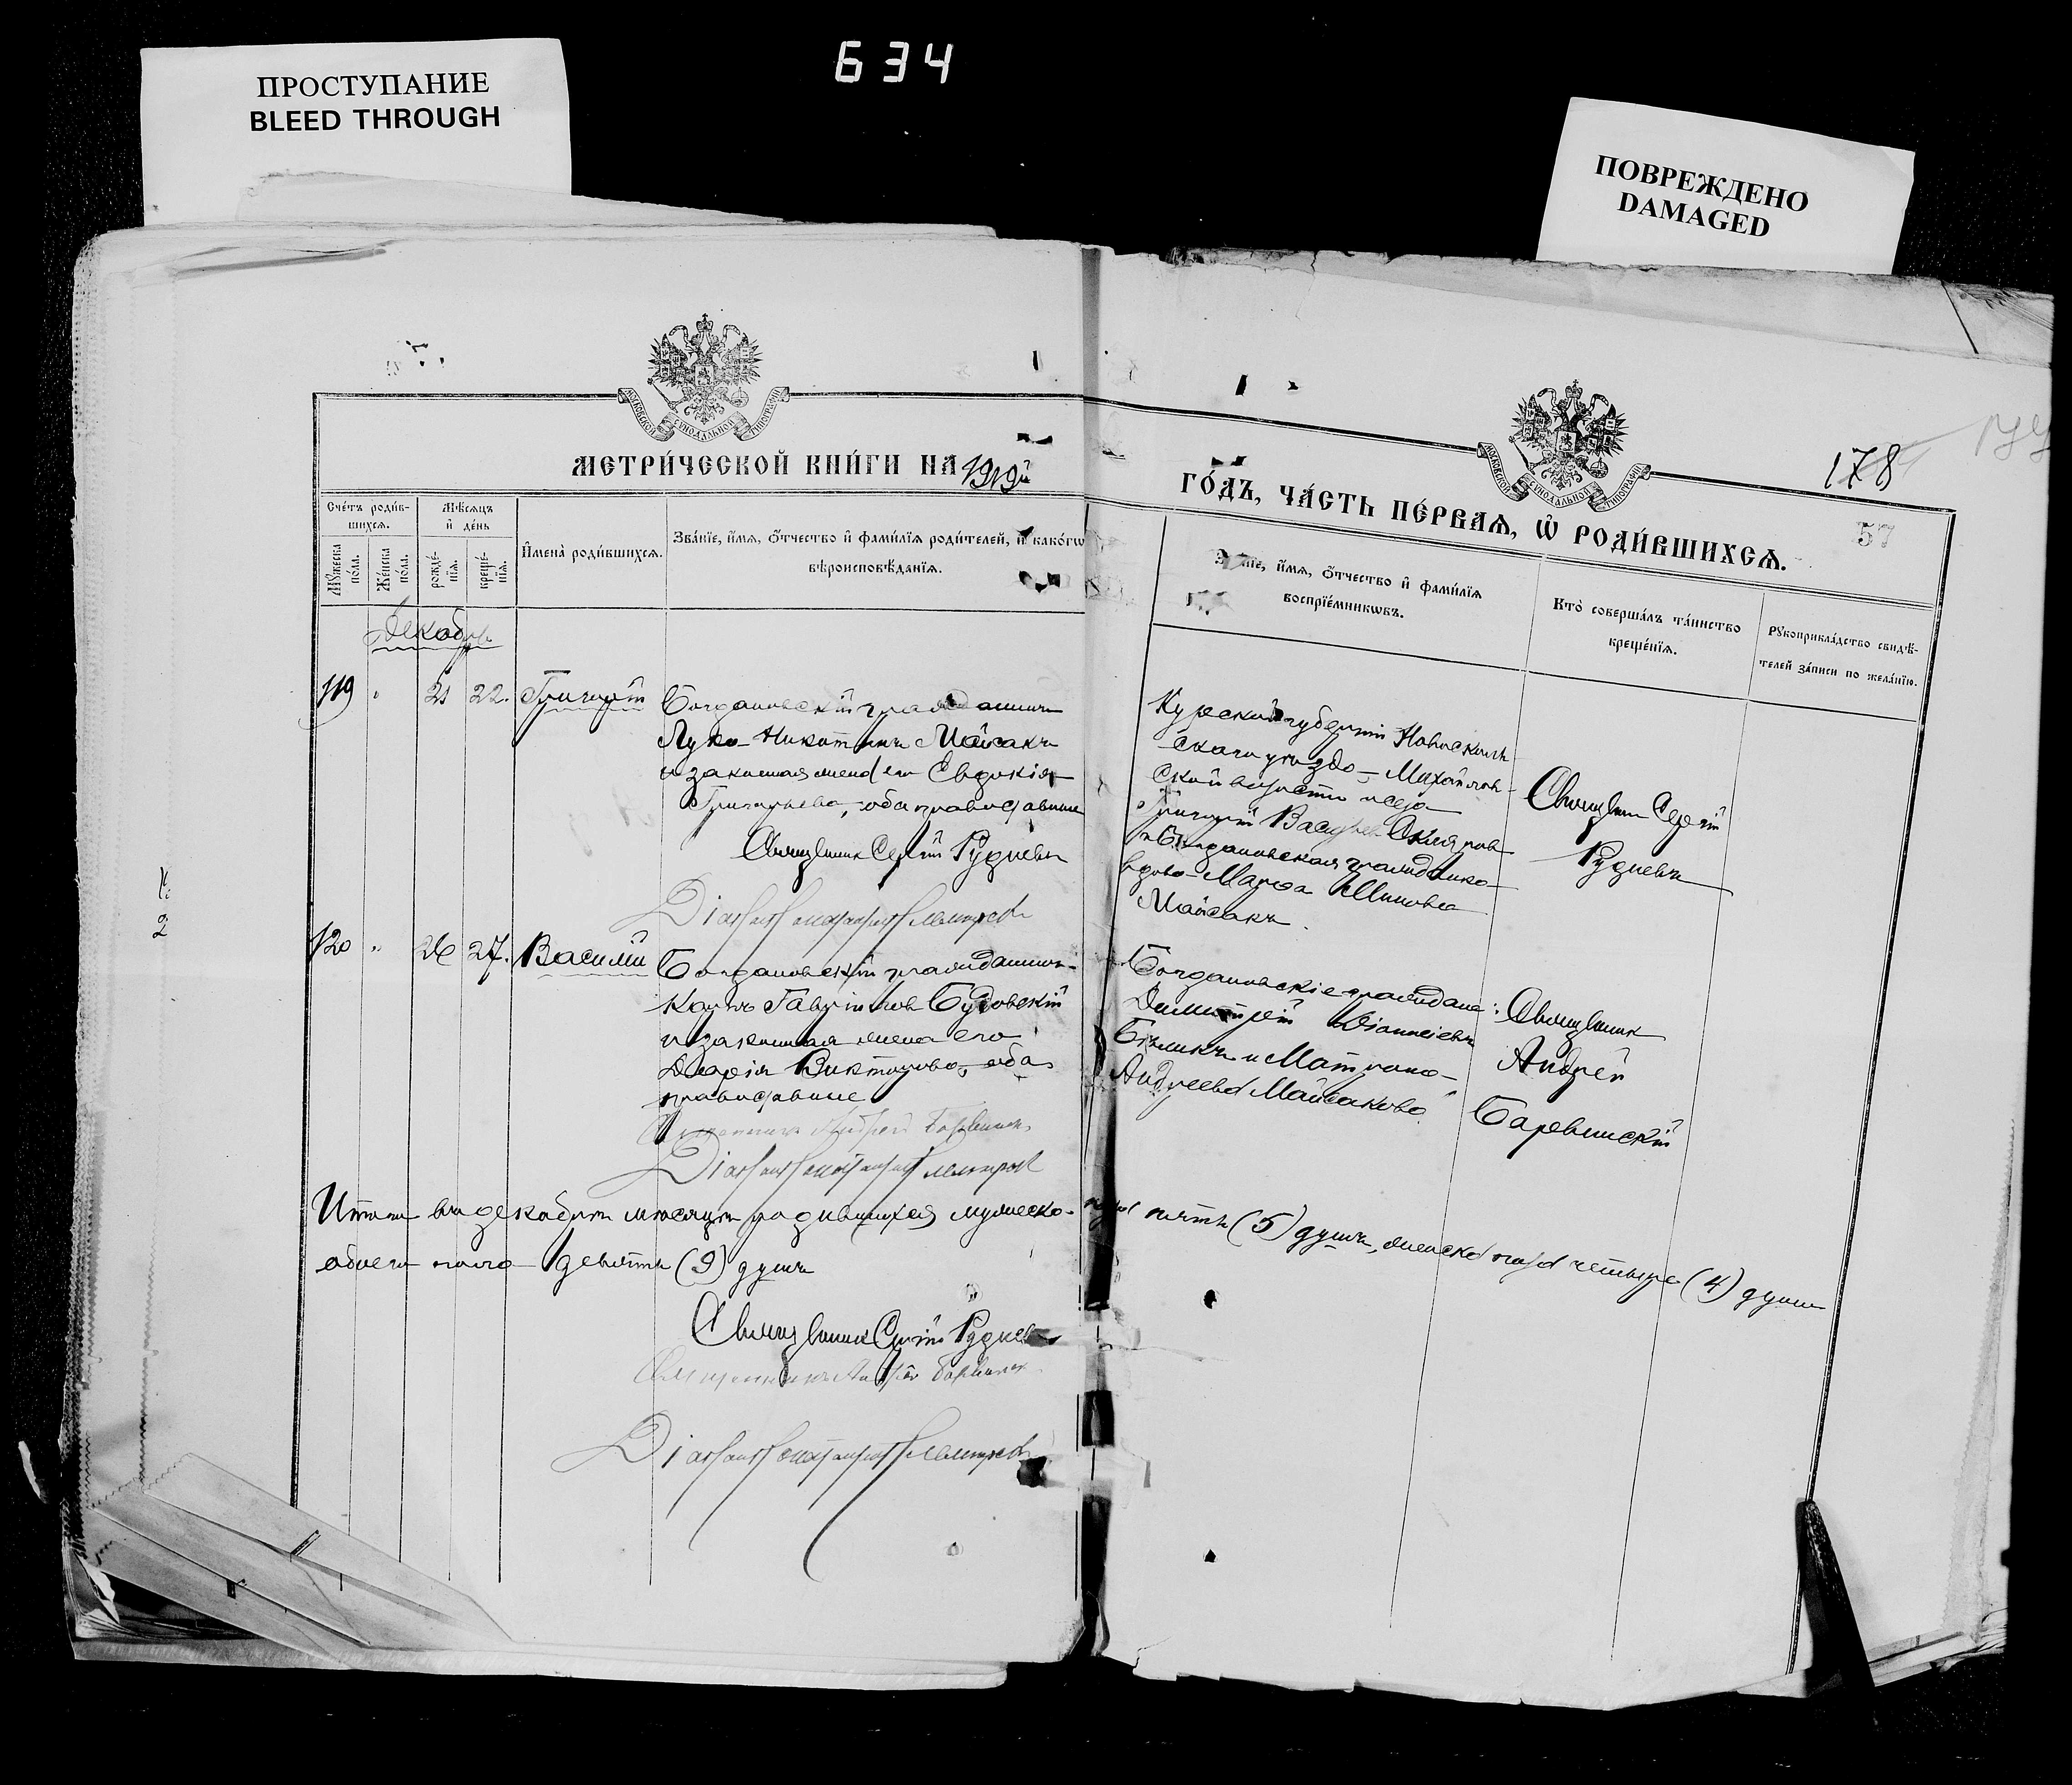 634
ПРОСТУПАНИЕ
BLEED THROUGH
ПОВРЕЖДЕНО
DAMAGED
МОСКОВСКОЙ СѴНОДАЛЬНОЙ ТИПОГРАФІИ
МОСКОВСКОЙ СѴНОДАЛЬНОЙ ТИПОГРАФІИ
178
57
МЕТРИ́ЧЕСКОЙ КНИ́ГИ НА 1919й
ГО́ДЪ, ЧА́СТЬ ПЕ́РВАѦ, Ѡ҆ РОДИ́ВШИХСѦ.
Сче́тъ роди́в-
шихсѧ.
Мꙋ́жеска по́ла.
Же́нска по́ла.
Мѣ́сѧцъ
и҆ де́нь
рожде́-
нїѧ.
креще́-
нїѧ.
И҆мена̀ роди́вшихсѧ.
Зва́нїе, и҆́мѧ, ѻ҆́тчество и҆ фами́лїѧ роди́телей, и҆ како́гѡ
вѣроисповѣ́данїѧ.
и҆́мѧ, ѻ҆́тчество и҆ фами́лїѧ
воспрїе́мникѡвъ.
Кто̀ соверша́лъ та́инство
креще́нїѧ.
Рꙋкоприкла́дство свидѣ́-
телей за́писи по жела́нїю.
Декабрь
119 " 21 22. Григорій
Богдановскій гражданинъ
Лука Никитинъ Майсакъ
и законная жена его Евдокія
Григорьева, оба православные
Священник Сергій Рудневъ
Курской губерніи Новосколь-
скаго уезда Михайлов-
ской волости
Григорій Васильев Скляров
и Богдановская гражданка
вдова Марѳа
Майсакъ.
Священник Сергій
Рудневъ
120 " 26 27. Василій
Богдановскій гражданинъ
Карпъ Гавріилов Будовскій
и законная жена его
Дарія Викторова, оба
православные
Священникъ Андрей
Богдановскіе граждане:
Димитрій Діонисіевъ
Бѣликъ и Матрона
Андреева Майсакова
Священник
Андрей
Барвинскій
Итого въ декабрѣ мѣсяцѣ родившихся мужеска пола пять (5) душъ, женска пола четыре (4) души
обоего пола девять (9) душъ
Священник Сергій Рудневъ
Священникъ Андрей